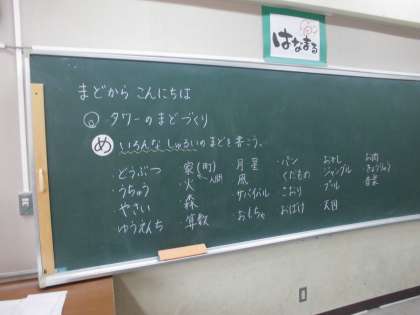 はなまる
まどから こんにちは
Q タワーのまどづくり
め いろんなしゅるいのまどを書こう。
・どうぶつ
・うちゅう
・やさい
・ゆうえんち
・家(町)
人間
・火
・森
・算数
・月 星
・風
・サバイバル
・おもちゃ
・パン
・くだもの
・こおり
・おばけ
おかし
ジャングル
プール
天国
お肉
きょうりゅう
音楽